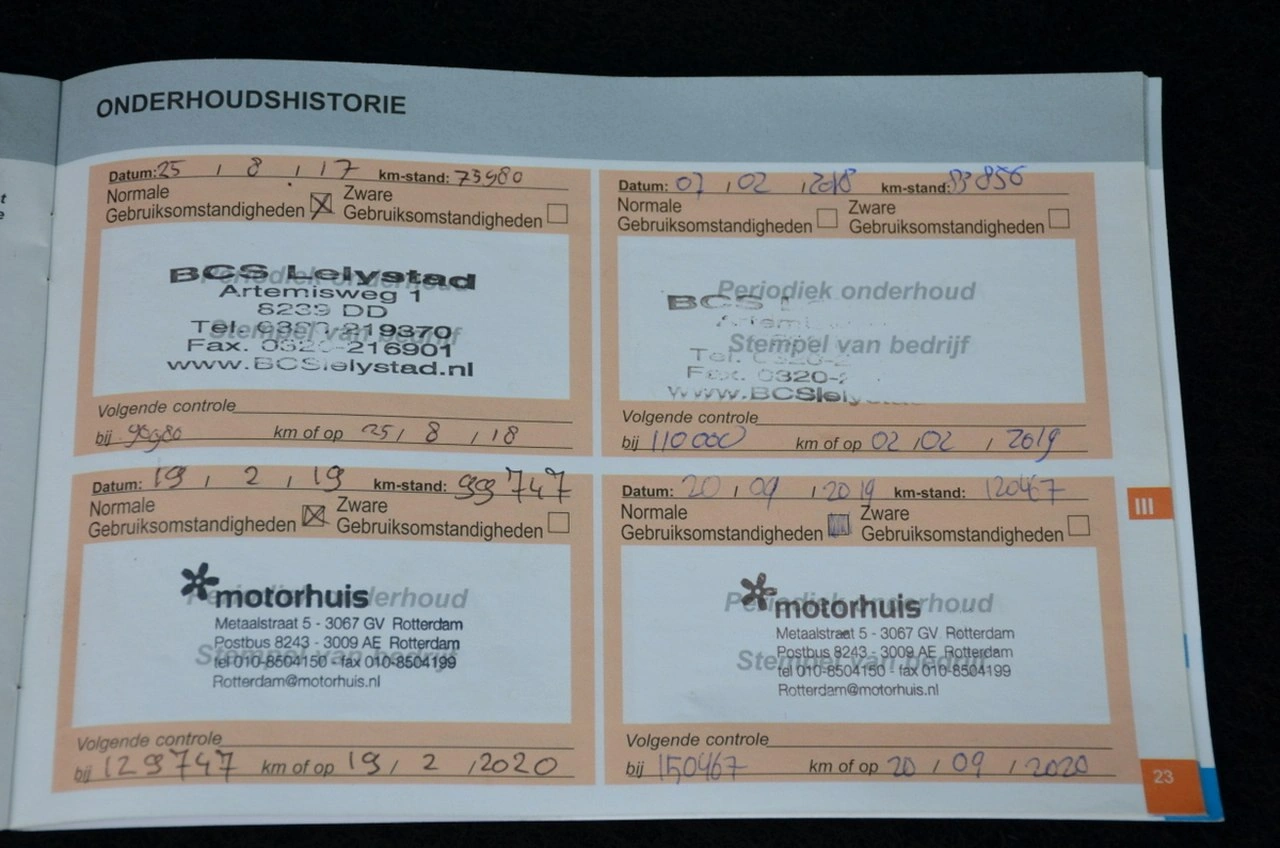 ONDERHOUDSHISTORIE
Datum: 25 / 8 / 17 km-stand: 73980
Normale Gebruiksomstandigheden Zware Gebruiksomstandigheden
Periodiek onderhoud
Stempel van bedrijf
BCS Lelystad
Artemisweg 1
8239 DD
Tel. 0320-219370
Fax. 0320-216901
www.BCSlelystad.nl
Volgende controle
bij 90980 km of op 25 / 8 / 18
Datum: 02 / 02 / 2018 km-stand: 83856
Normale Gebruiksomstandigheden Zware Gebruiksomstandigheden
Periodiek onderhoud
BCS L
Artemi
Stempel van bedrijf
Tel. 0320-2
Fax. 0320-
www.BCSlely
Volgende controle
bij 110000 km of op 02 / 02 / 2019
Datum: 19 / 2 / 19 km-stand: 99747
Normale Gebruiksomstandigheden Zware Gebruiksomstandigheden
Periodiek onderhoud
Stempel van bedrijf
motorhuis
Metaalstraat 5 - 3067 GV Rotterdam
Postbus 8243 - 3009 AE Rotterdam
tel 010-8504150 - fax 010-8504199
Rotterdam@motorhuis.nl
Volgende controle
bij 129747 km of op 19 / 2 / 2020
Datum: 20 / 09 / 2019 km-stand: 120467
Normale Gebruiksomstandigheden Zware Gebruiksomstandigheden
Periodiek onderhoud
Stempel van bedrijf
motorhuis
Metaalstraat 5 - 3067 GV Rotterdam
Postbus 8243 - 3009 AE Rotterdam
tel 010-8504150 - fax 010-8504199
Rotterdam@motorhuis.nl
Volgende controle
bij 150467 km of op 20 / 09 / 2020
III
23